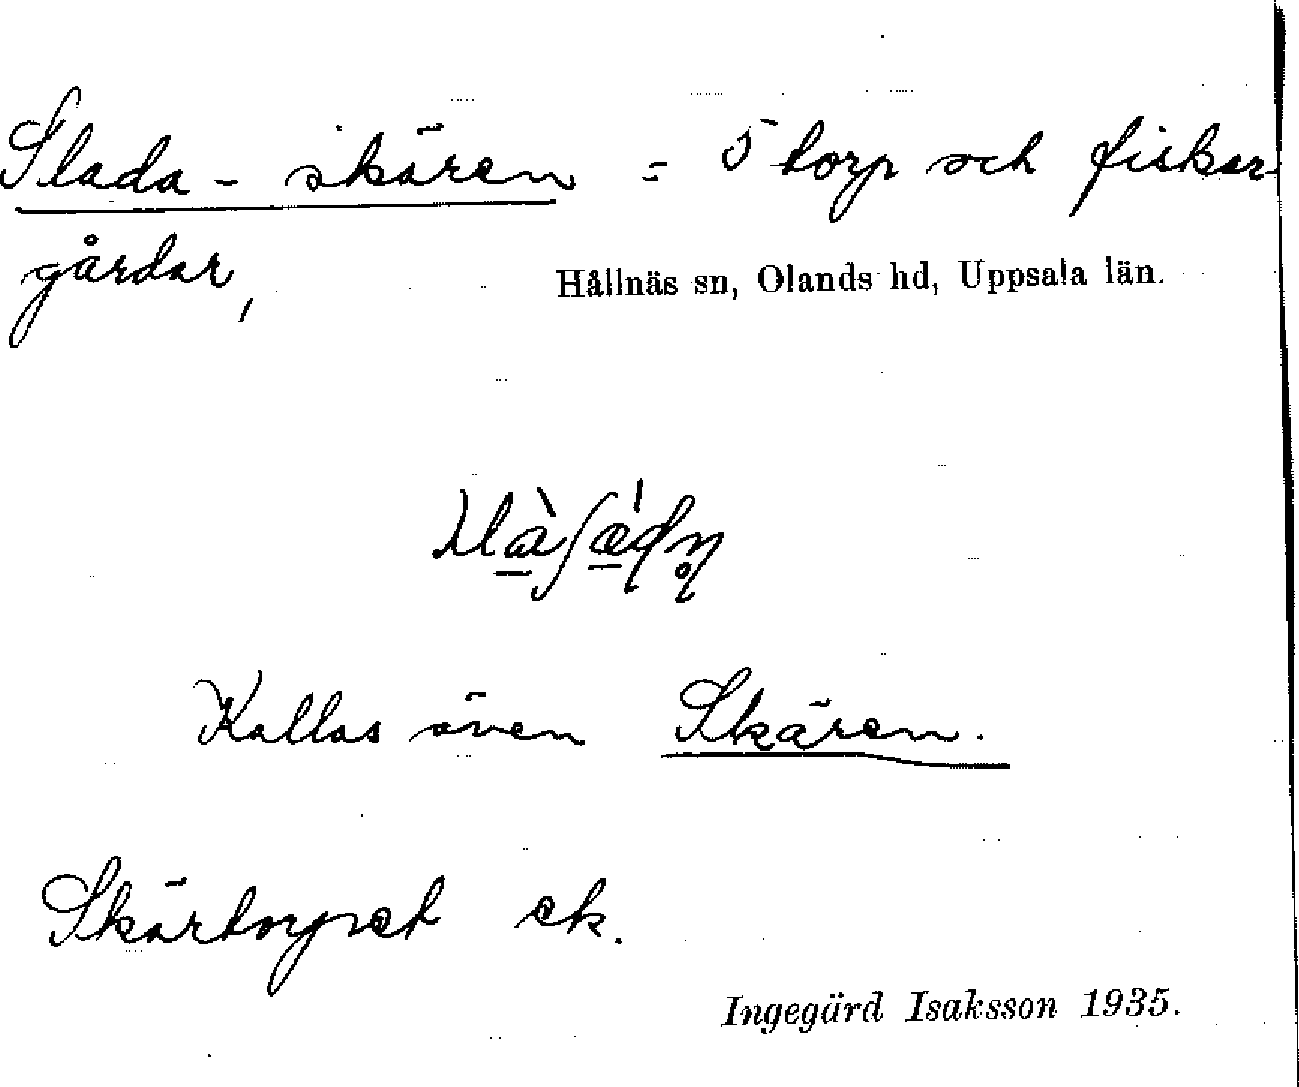 Slada-skären = 5 torp och fiskar-
gårdar,
Hållnäs sn, Olands hd, Uppsala län.
Kallas även Skären.
Skärtorpet ek.
Ingegärd Isaksson 1935.